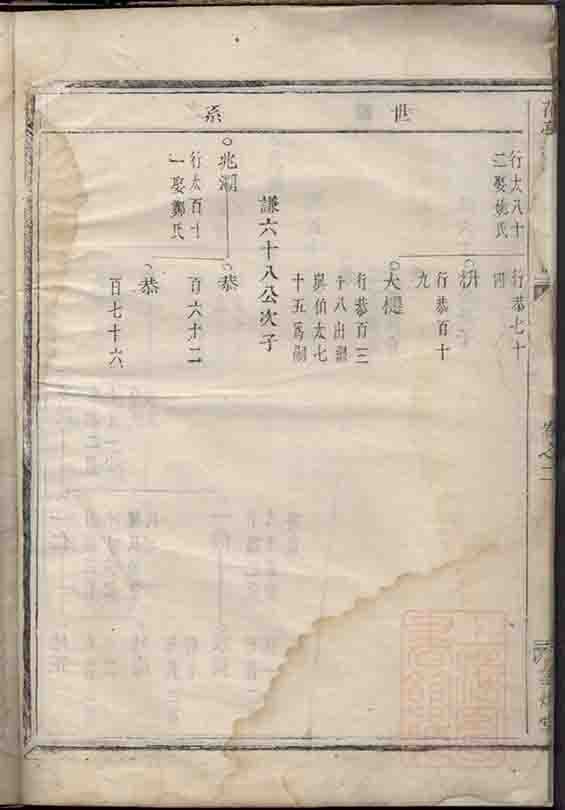 世系
行太八十
二娶姚氏
行恭七十
四
枡
行恭百十
九
大楗
行恭百三
十八出繼
與伯太七
十五爲嗣
謙六十八公次子
兆湖
行太百十
一娶鄭氏
恭
百六十二
恭
百七十六
卷之二